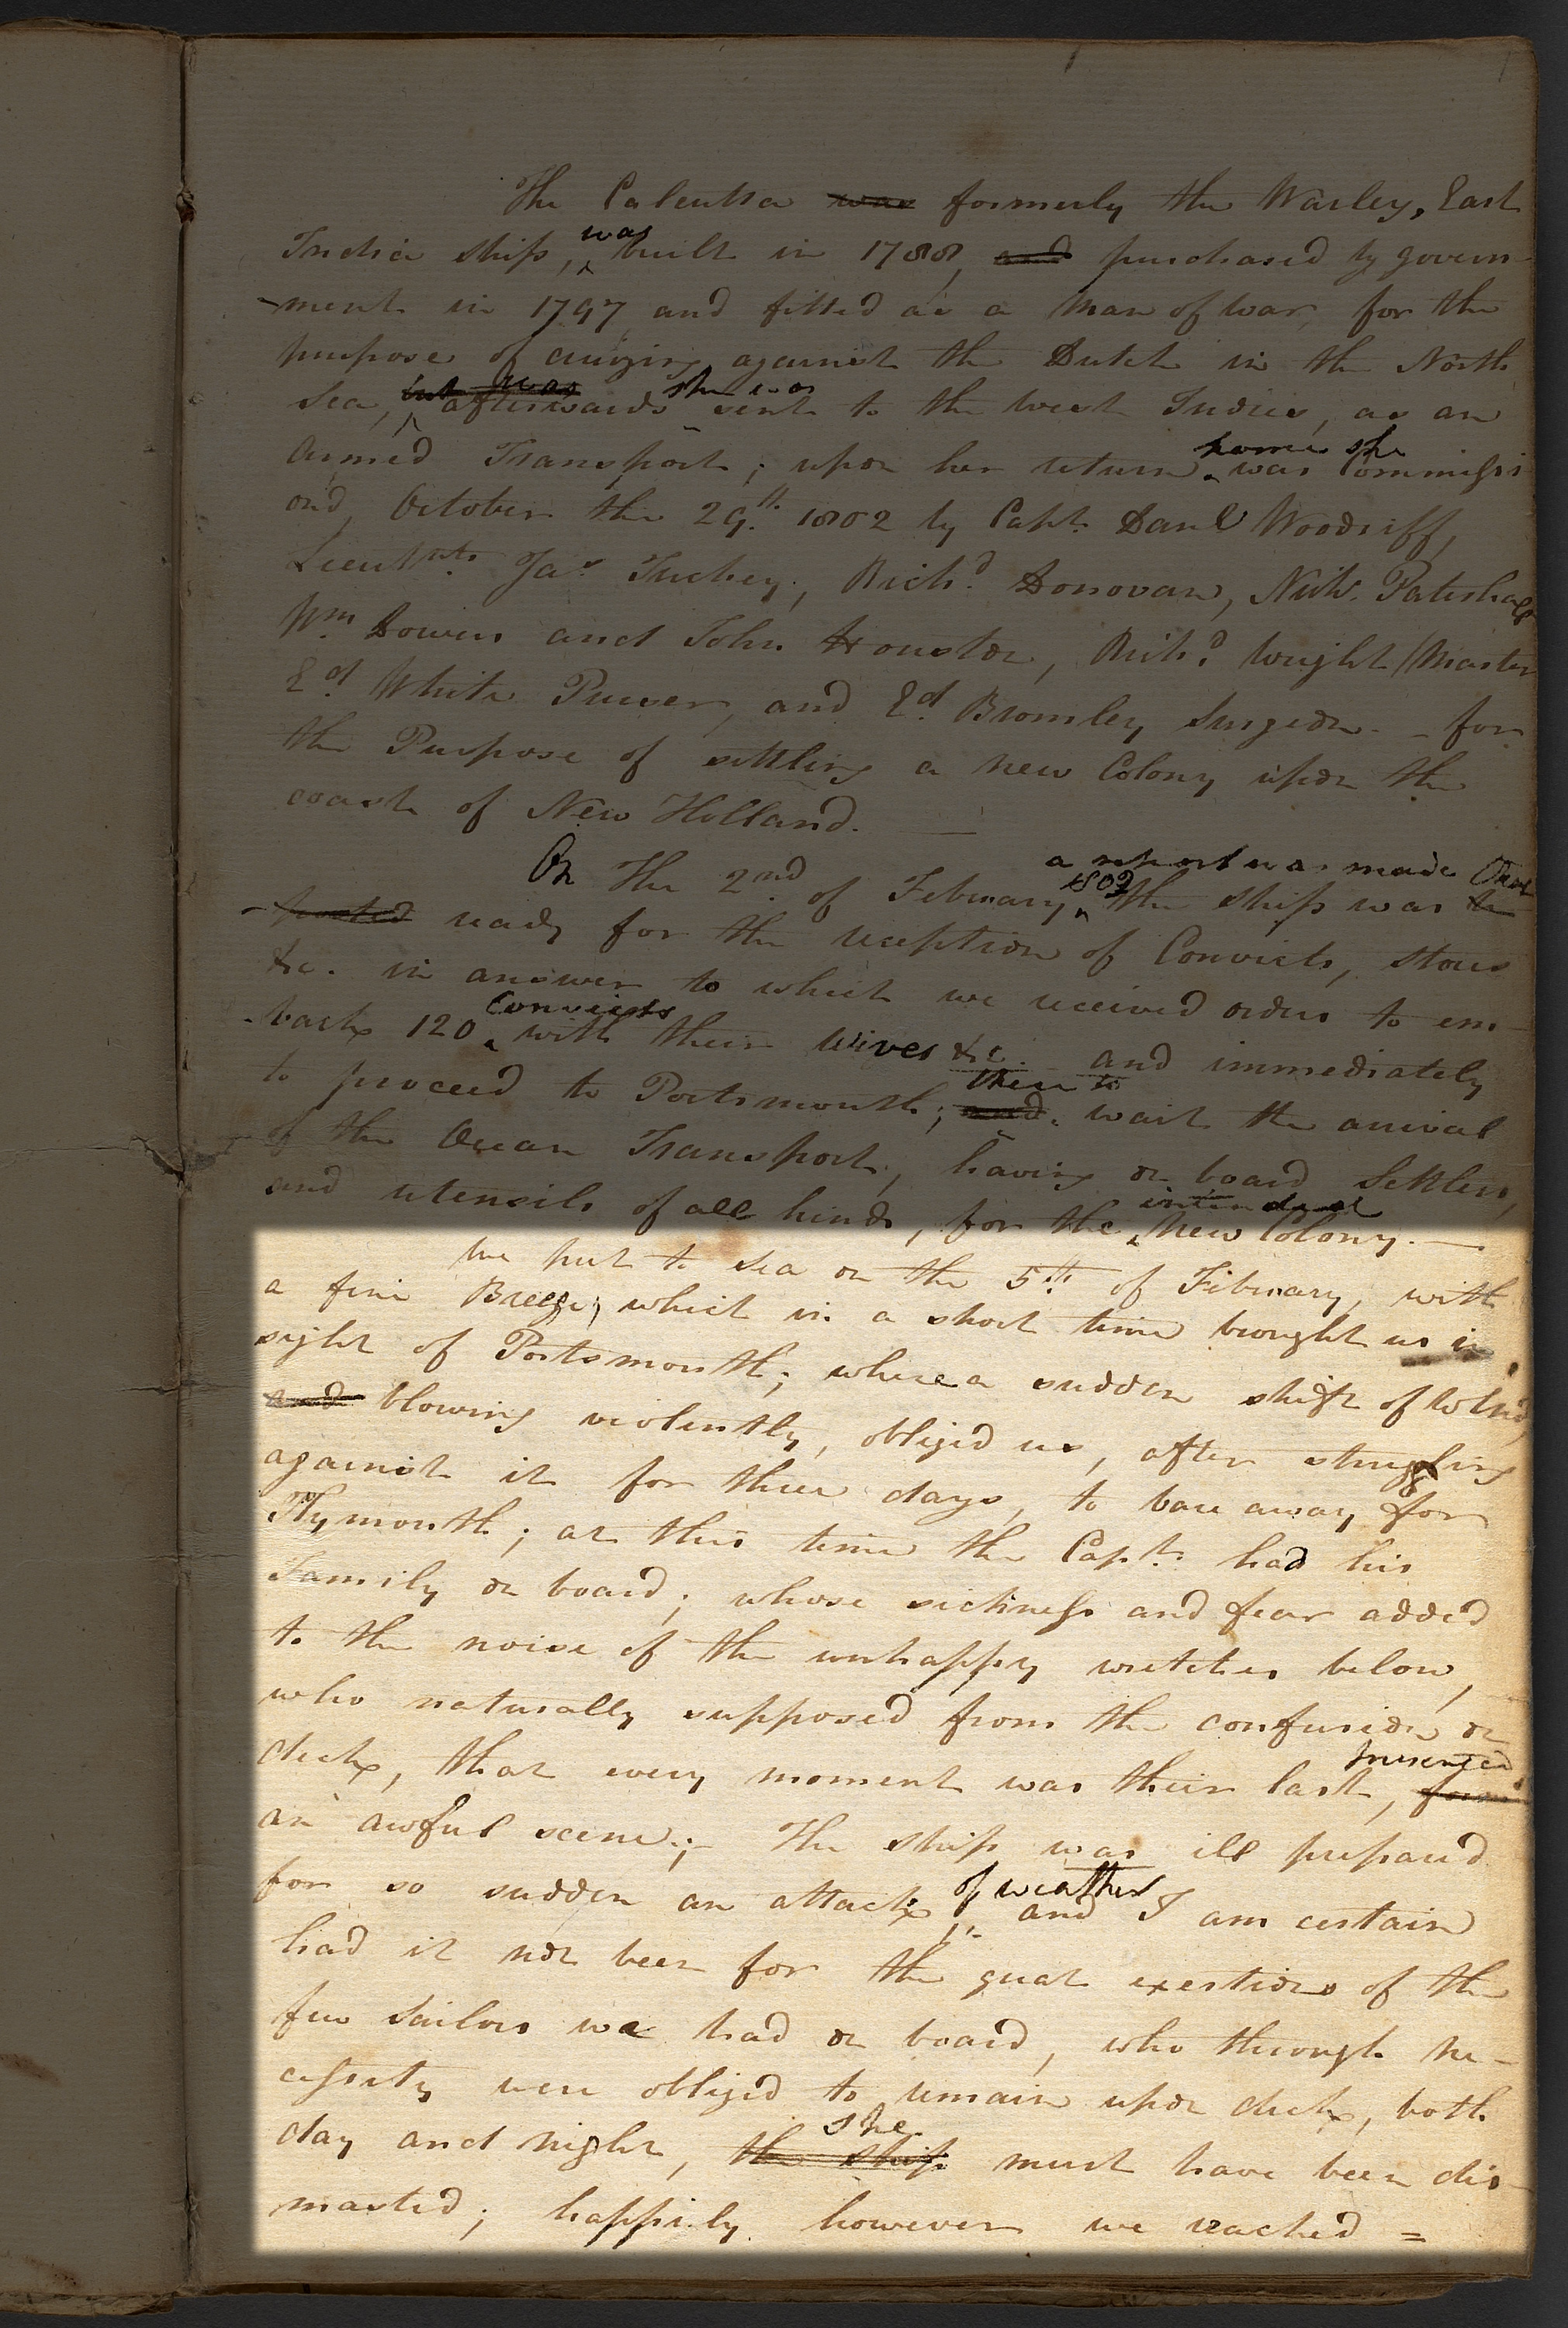 The Calcutta was formerly the Warley, East
India ship, was built in 1788, and purchased by govern-
-ment in 1797 and fitted as a Man of war, for the
purpose of cruizing against the Dutch in the North
Sea, but was afterwards she was sent to the west Indies, as an
Armed Transport; upon her return home she was Commissi-
ond, October the 29th. 1802 by Capt. Danl Woodriff,
Lieutnts. Jas Tuckey, Richd. Donovan, Nichs. Pateshall
Wm. Dowers and John Houston, Richd. Wright (Master
Ed White Purser, and Ed. Bromley Surgeon - for
the Purpose of settling a new Colony upon the
coast of New Holland.
On The 2nd. of February 1803 a report was made that the ship was re
-ported ready for the reception of Convicts, stores
&c. in answer to which we received orders to em-
-bark 120 Convicts with their Wives &c. and immediately
to proceed to Portsmouth; and there to wait the arrival
of the Ocean Transport, having on board Settlers,
and utensils of all kinds, for the intended New Colony. —
We put to sea on the 5th. of February, with
a fine Breeze; which in a short time brought us in
sight of Portsmouth; where a sudden shift of Wind,
and blowing violently, obliged us, after struggling
against it for three days, to bare away for
Plymouth; at this time the Capt. had his
Family on board; whose sickness and fear added
to the noise of the unhappy wretches below,
who naturally supposed from the confusion on
deck, that every moment was their last, form'd presented
an awful scene;- The ship was ill prepared
for so sudden an attack of weather, and I am certain
had it not been for the great exertions of the
few sailors we had on board, who through ne-
cessity were obliged to remain upon deck, both
day and night, the ship she must have been dis-
masted; happily however we reached =